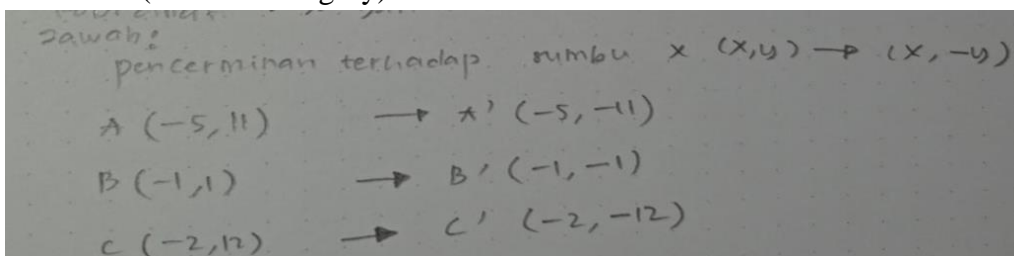 Jawab:
pencerminan terhadap sumbu x (x,y) → (x,-y)
A (-5, 11) → A' (-5, -11)
B (-1,1) → B' (-1, -1)
C (-2,12) → C' (-2, -12)